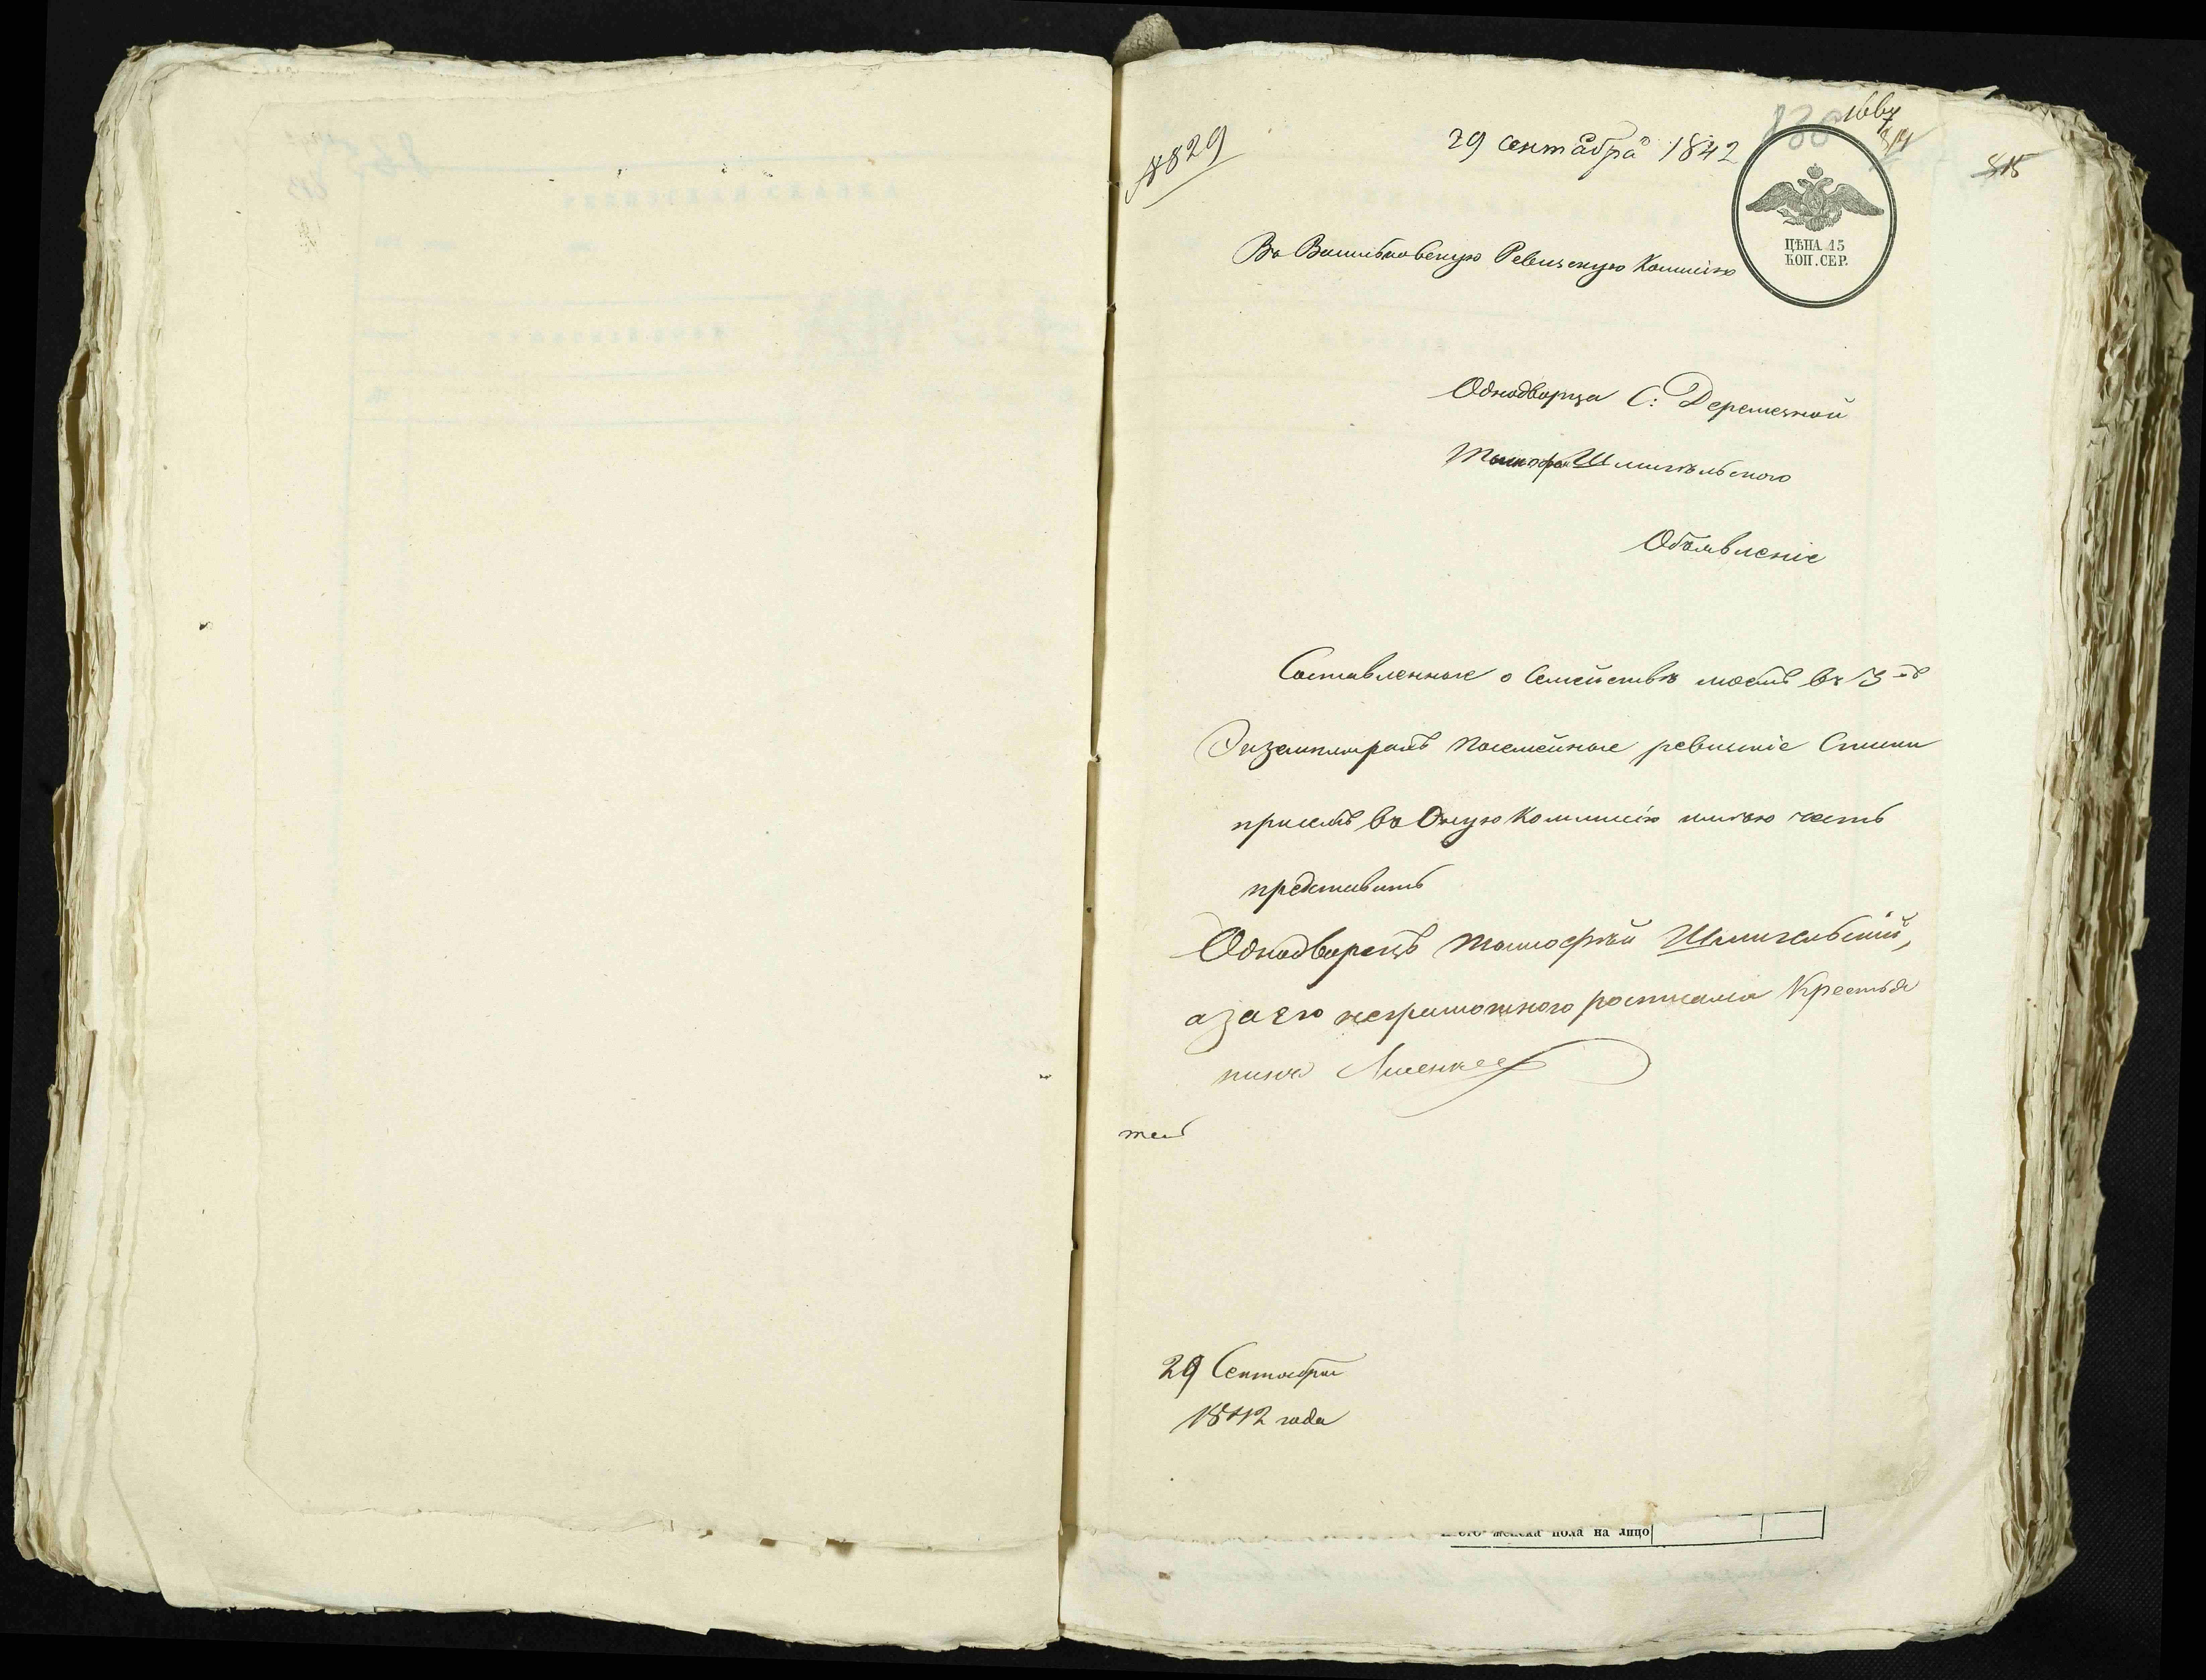 8829
29 Сентября 1842
1667
814
815
ЦѢНА 15
КОП. СЕР.
Въ Васильковскую Ревизскую Комисію
Однодворца С: Деремезной
Тимофея Шмигѣльского
Объявленіе
Составленные о Семействѣ моемъ въ 3-хъ
Экземплярахъ посемейные ревизкіе Списки
присемъ въ Оную Коммисію имѣю честь
представить
Однодворецъ Тимофѣй Шмигельский,
а за его неграмотного росписался Крестья
нинъ
29 Сентября
1842 года
женска пола на лицо